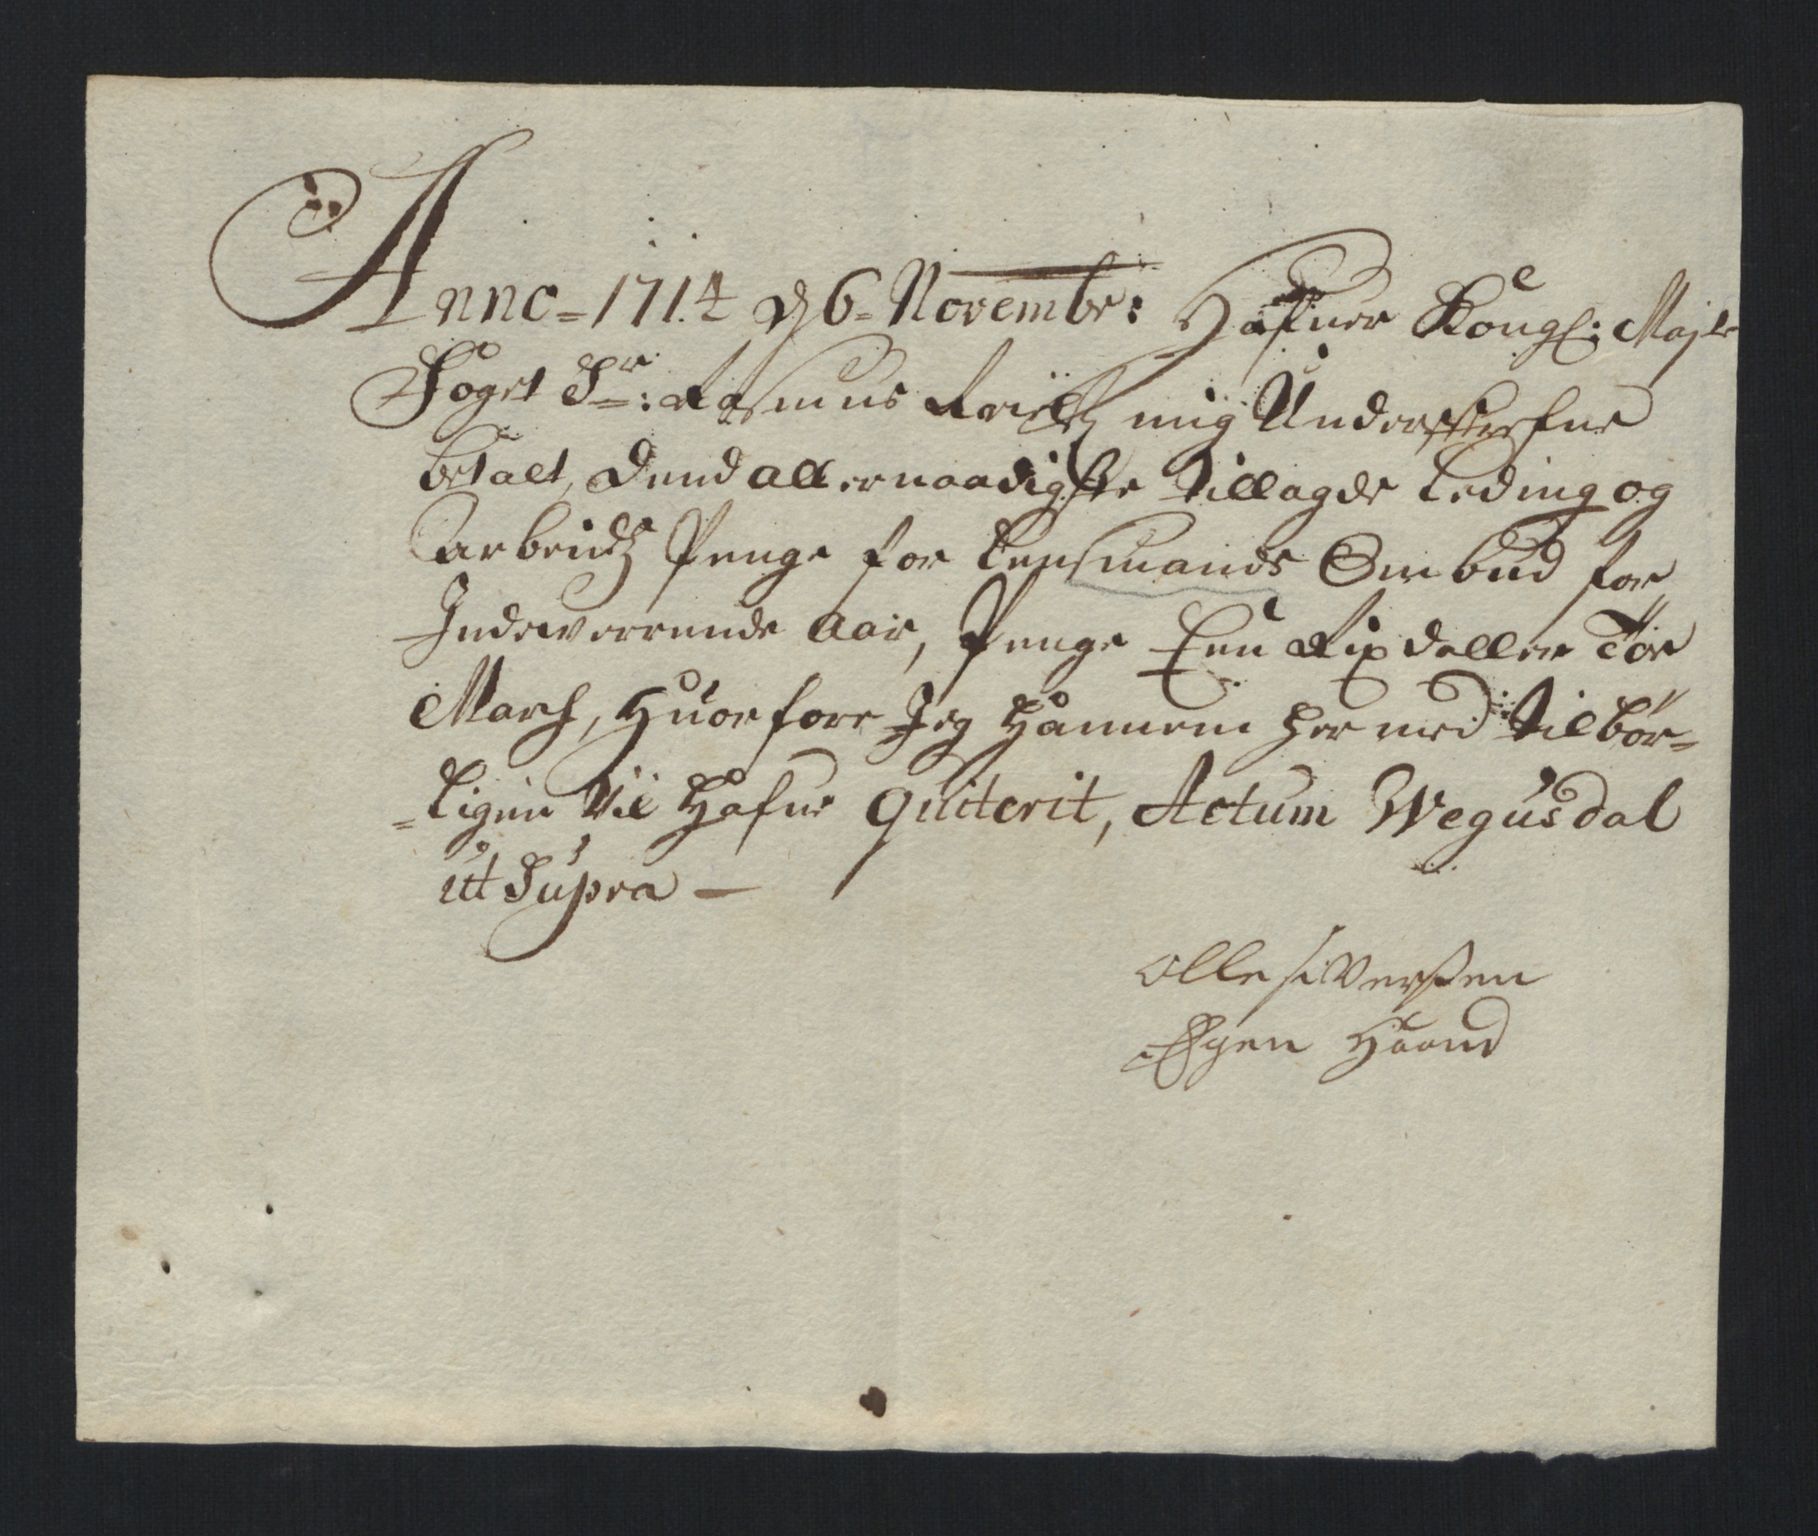 Anno - 1714 d 6 - Novembr: Hafuer Kongl: Mayts
Foget Sr: Rasmus mig Underskrefne
betalt, Dend allernaadigste tillagde Leding og
arbeidtz Penge for Lensmands Ombud for
Indeverrende Aar, Penge Een Rix daller Tör
March, Huorfore Jeg Hannem her med tilbör=
=ligen Vil Hafue quiterit, Actum Wegusdal
ut Supra —
Olle siversen
Egen Haand